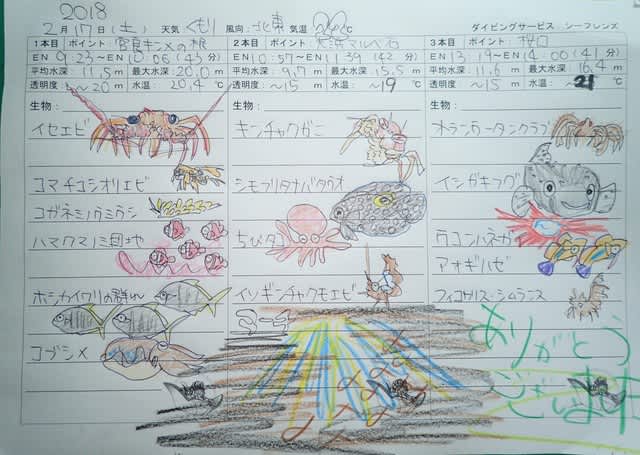 2018
2月17日(土) 天気 くもり 風向: 北東 気温 22℃ ダイビングサービス シーフレンズ
1本目 ポイント
EN 9:23~EN 10:06 (43分)
平均水深: 11.5m 最大水深: 20.0m
透明度 ~20m 水温: 20.4℃
生物:
イセエビ
コマチコシオリエビ
コガネミノウミウシ
ハマクマノミ団地
ホシカイワリの群れ
コブシメ
2本目 ポイント 大浜マルベ石
EN 10:57~EN 11:39 (42分)
平均水深 9.7m 最大水深: 15.5m
透明度: ~15m 水温: ~19℃
生物:
キンチャクガニ
シモフリタナバタウオ
ちびタコ
イソギンチャクモエビ
3本目 ポイント
EN 13:19~EN 14:00 (41分)
平均水深: 11.6m 最大水深 16.4m
透明度: ~15m 水温: ~21℃
生物:
オランウータンクラブ
イシガキフグ
ウコンハネガイ
アオギハゼ
フィコカリス・シムランス
ありがとう
ございます